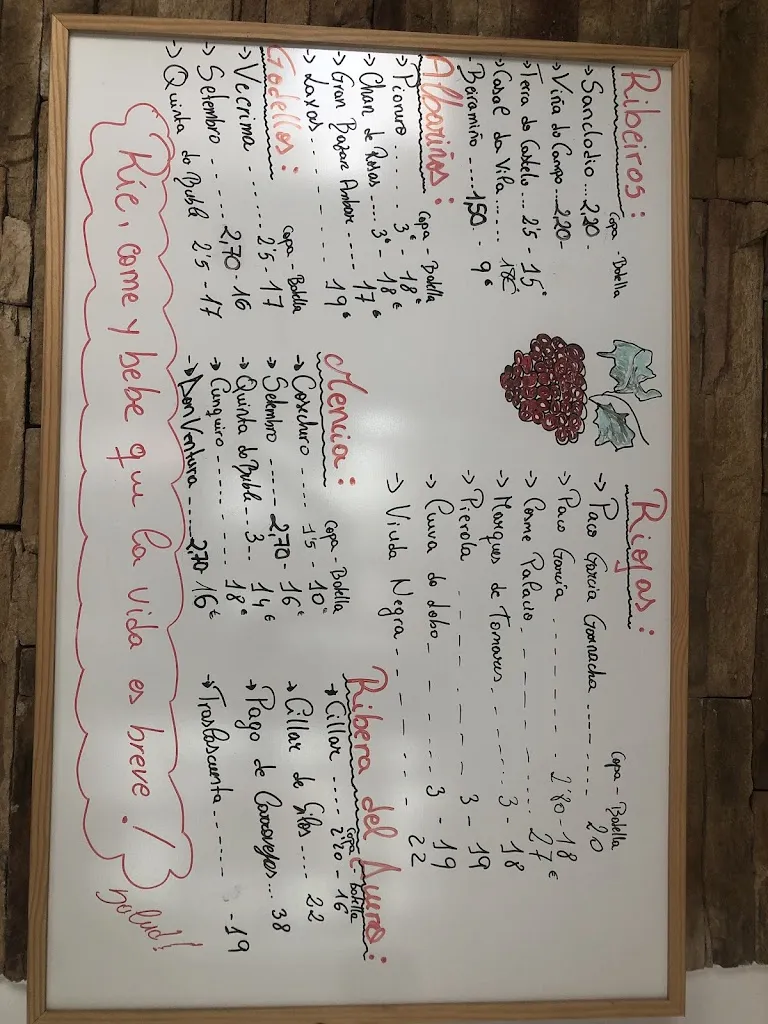 Ribeiros:
Copa - Botella
→ Sanclodio ... 2,20 -
→ Viña do Campo 2,20 -
→ Terra do Castelo ... 2'5 - 15€
→ Casal da Vila ..... 18€
- Beiramiño .... 1,50 - 9€
Albariños:
Copa - Botella
→ Pionero ...... 3€ - 18€
→ Chan de Rosas .... 3€ - 18€
→ Gran Bazan Ambar ---- 17€
→ Laxas ..... - - - - 19€
Godellos:
Copa - Botella
→ Vecrima ....... 2'5 - 17
→ Setembro ....... 2,70 - 16
→ Quinta do Buble 2'5 - 17
Riojas:
Copa - Botella
→ Paco Garcia Garnacha ---- ..... 20
→ Paco Garcia - - - - - - - - 2'80 - 18
→ Cosme Palacio. - - - - - ...... 27€
→ Marques de Tomares. - - - ..... 3 - 18
→ Pierola - - - - - - - - 3 - 19
→ Cueva do Lobo - - - - - .... 3 - 19
→ Viuda Negra - - - - - - - - 22
Mencia:
Copa - Botella
→ Cosechero ---- 1'5 - 10€
→ Setembro ----- 2,70 - 16€
→ Quinta do Buble .. 3 .. 14€
→ Cunqueiro - - - - - - - 18€
→ Don Ventura ..... 2,70 - 16€
Ribera del Duero:
Copa - Botella
→ Cillar .... 2'20 - 16
→ Cillar de Silos .... 22
→ Pago de Carraovejas ... 38
→ Traslascuesta ... - - - - - 19
Ríe, come y bebe que la vida es breve!
Salud!